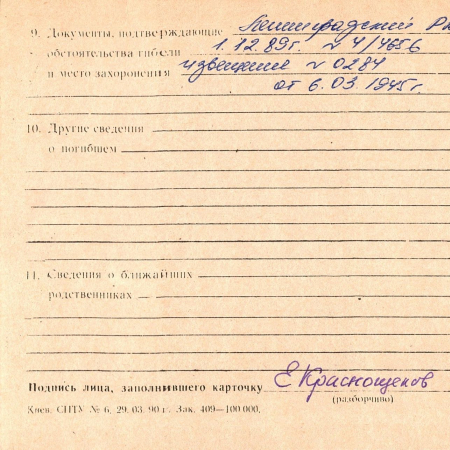 9. Документы, подтверждающие Ленинградский РК
обстоятельства гибели 1.12.89г. N 4/4656
и место захоронения извещение N 0284
от 6.03.1945г.
10. Другие сведения
о погибшем
11. Сведения о ближайших
родственниках
Подпись лица, заполнившего карточку Е Краснощеков
(разборчиво)
Киев. СПТУ № 6. 29. 03. 90 г. Зак. 409—100.000.